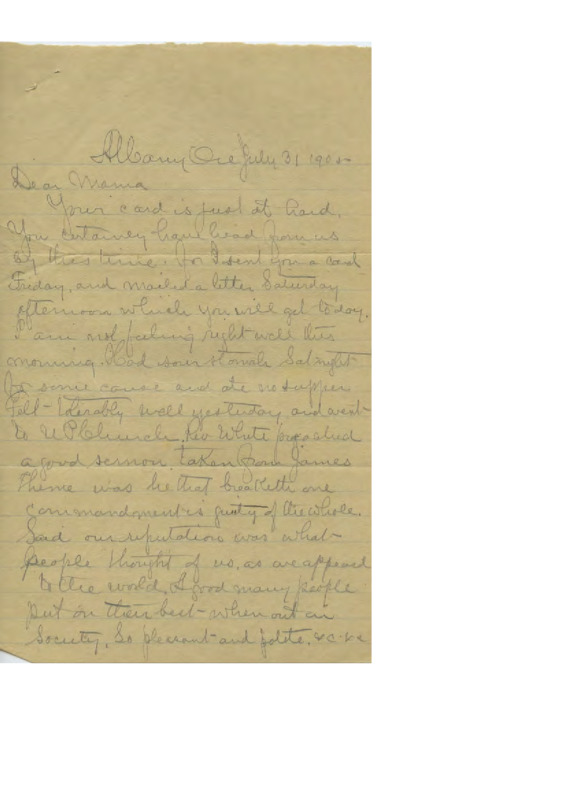 Albany Ore July 31 1905
Dear Mama
Your card is just at hand,
You certainey have head from us
by this time. for I sent you a card
Friday, and mailed a letter Saturday
afternoon which you will get to day.
I am not feeling right well this
morning. Had sour stomale Sat night
for some cause and ate no supper
Felt tolerably well yesterday and went
to U P Church, Rev White preached
a good sermon taken from James
theme was he that breaketh one
commandment is guilty of the whole.
Said our reputation was what
people thought of us, as we appead
to the world, A good many people
put on their best when out in
Society, So pleasant and polite, &c &c